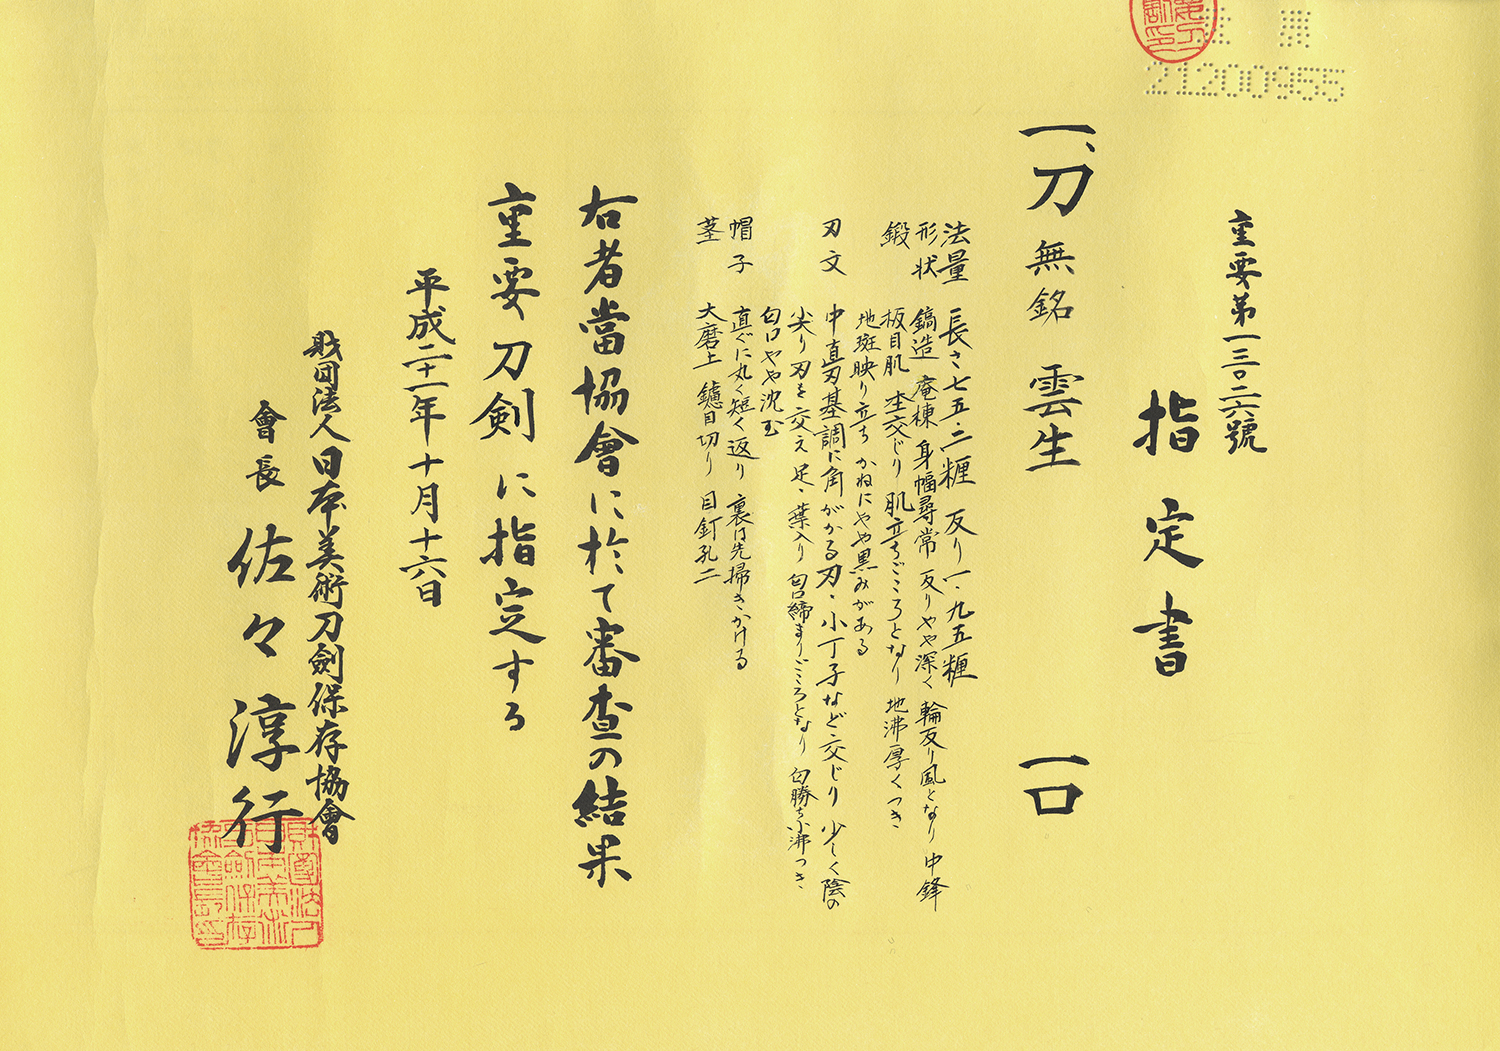 21200955
重要第一三〇二六號
指定書
一、刀 無銘 雲生 一口
法量 長さ七五・二糎 反り一・九五糎
形状 鎬造 庵棟 身幅尋常 反りやや深く 輪反り風となり 中鋒
鍛 板目肌 杢交じり 肌立ちごころとなり 地沸厚くつき
地斑映り立ち かねにやや黒みがある
刃文 中直刃基調に角がかる刃・小丁子など交じり 少しく陰の
尖り刃を交え 足・葉入り 匂口締まりごころとなり 匂勝ち小沸つき
匂口やや沈む
帽子 直ぐに丸く短く返り 裏は先掃きかける
茎 大磨上 鑢目切り 目釘孔二
右者當協會に於て審査の結果
重要刀剣に指定する
平成二十一年十月十六日
財団法人日本美術刀劍保存協會
會長 佐々淳行